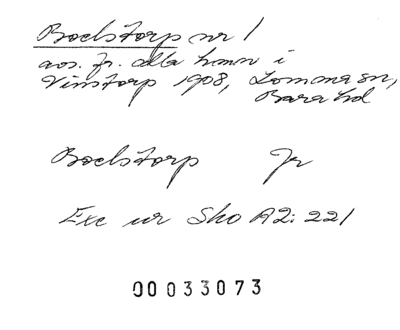 Boelstorp nr 1
avs. fr. alla hmn i
Vinstorp 1908, Lomma sn,
Bara hd
Boelstorp Jr
Exc ur Sko A2: 221
00033073